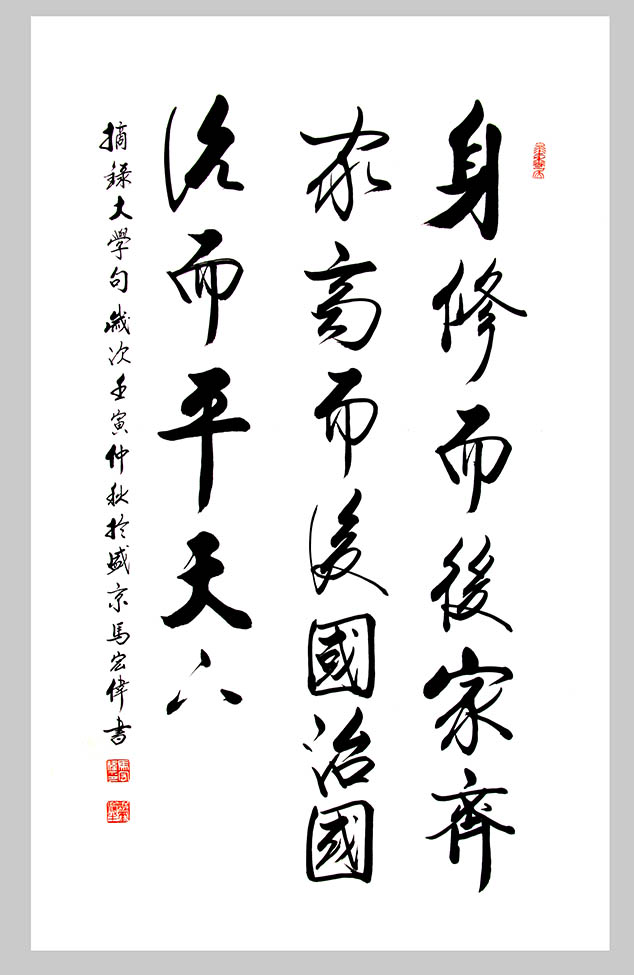 身修而後家齊
家齊而後國治國
治而平天下
摘錄大學句歲次壬寅仲秋於盛京馬宏偉書